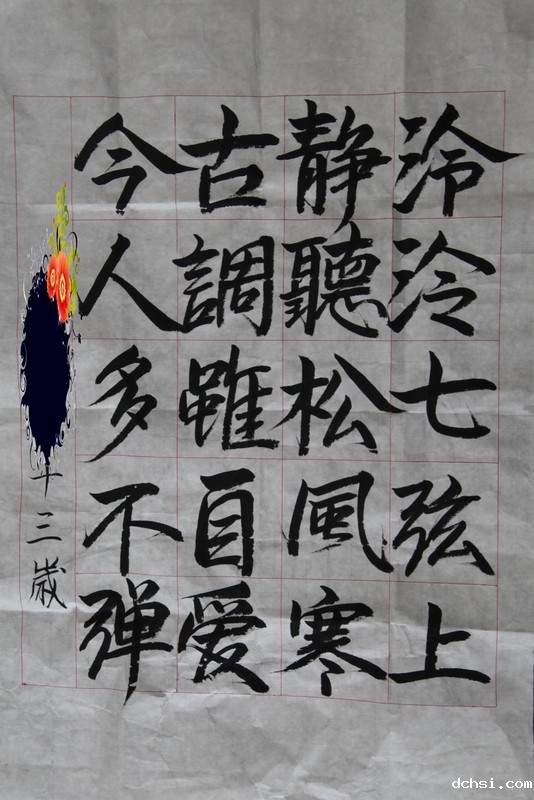 泠泠七弦上
静聽松風寒
古調雖自愛
今人多不彈
十三歲
dchsi.com